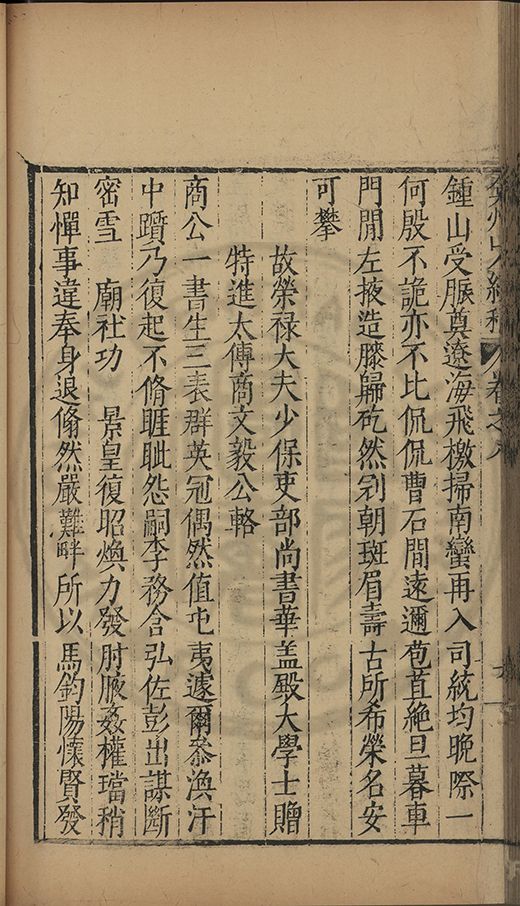 鍾山受脤奠遼海飛檄掃南蠻再入司統均晚際一
何殷不詭亦不比侃侃曹石間遠邇苞苴絶旦暮車
門閒左掖造膝歸矻然列朝班眉壽古所希榮名安
可攀
故榮禄大夫少保吏部尚書華盖殿大學士贈
特進太傅商文毅公輅
商公一書生三表群英冠偶然值屯夷遽爾叅渙汗
中躓乃復起不脩睚眦怨嗣李務含弘佐彭出謀斷
密雪 廟社功 景皇復昭煥力發肘腋姦權璫稍
知憚事違奉身退翛然嚴灘畔所以馬鈞陽懷賢發
卷之八